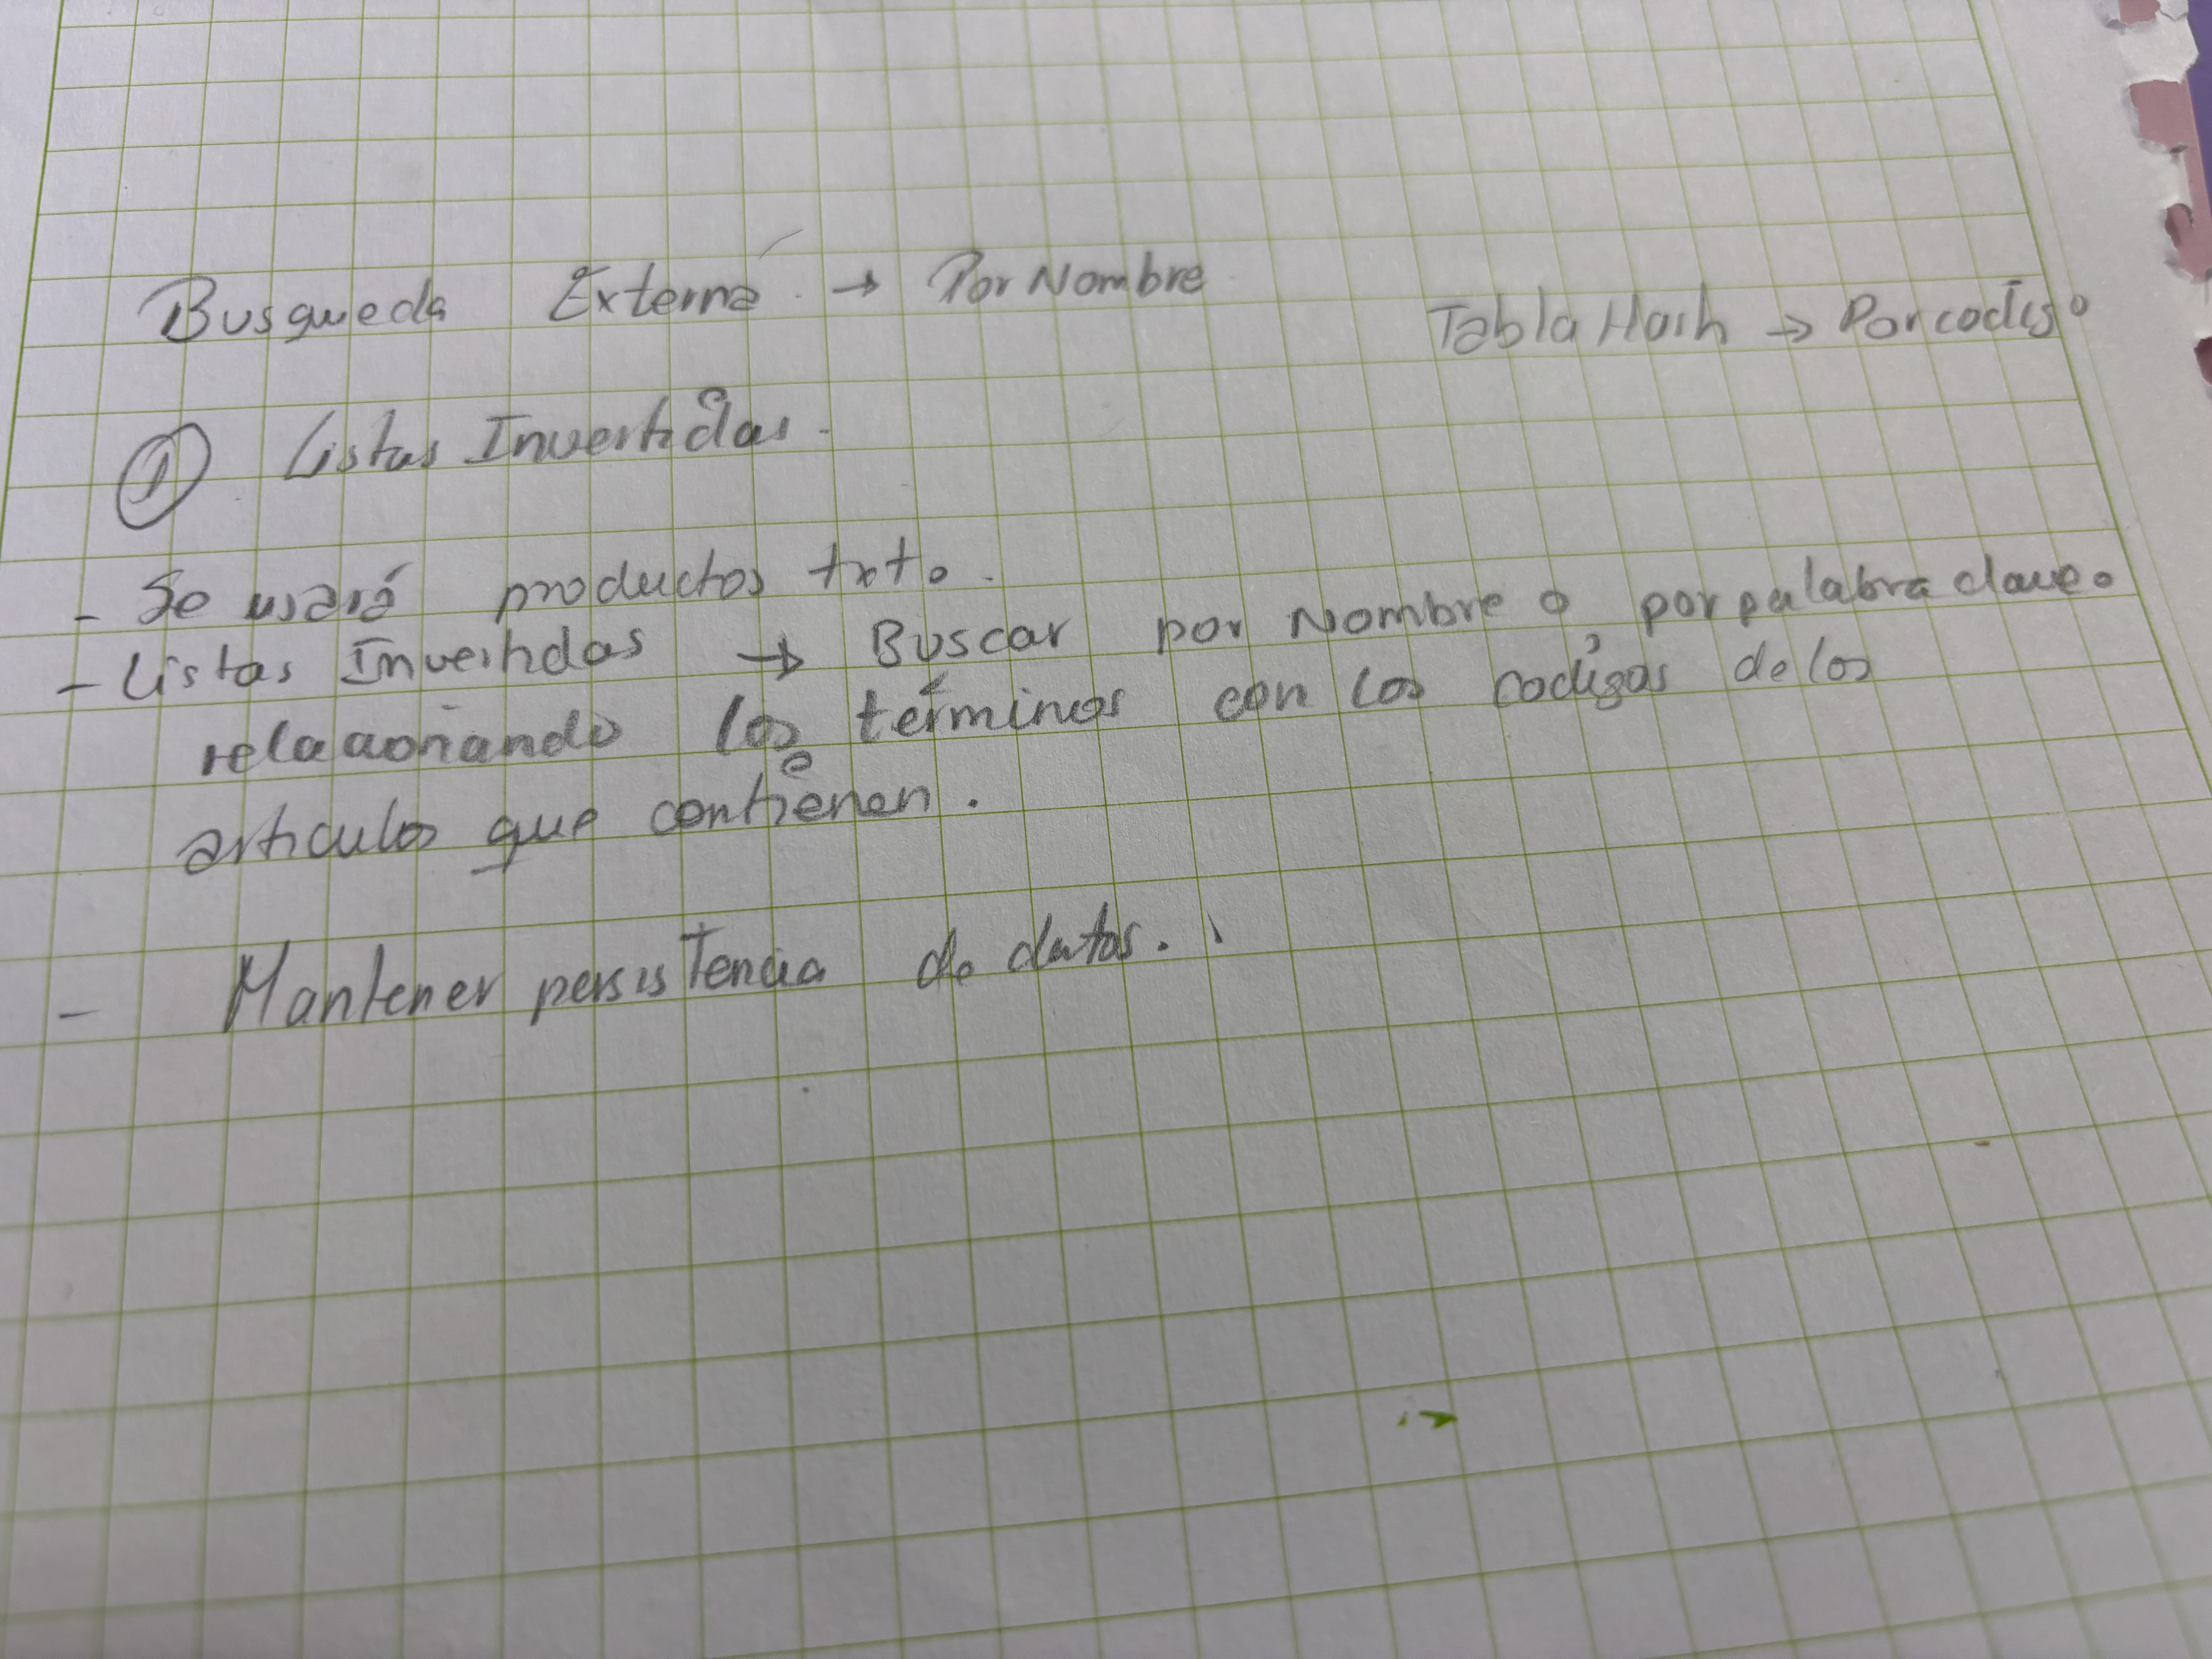 Busqueda Externa. → Por Nombre Tabla Hash → Por codigo
① Listas Invertidas.
- Se usará productos txt.
- Listas Invertidas → Buscar por nombre o por palabra clave.
relacionando los términos con los codigos de los
articulos que contienen.
- Mantener persistencia de datos.